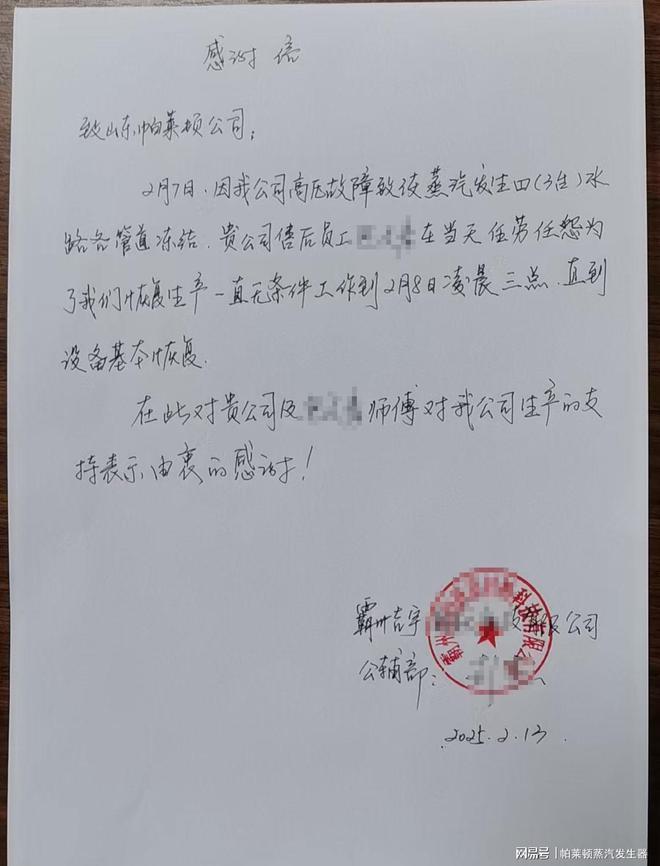 感谢信
致山东帕莱顿公司：
2月7日，因我公司高压故障致使蒸汽发生四(3台)水
路各管道冻结.贵公司售后员工 在当天任劳任怨为
了我们恢复生产一直无条件工作到2月8日凌晨三点.直到
设备基本恢复.
在此对贵公司及 师傅对我公司生产的支
持表示由衷的感谢！
霸州吉宇 技有限公司
公辅部：
霸州 科技有限公司
2025.2.13.
网易号 | 帕莱顿蒸汽发生器